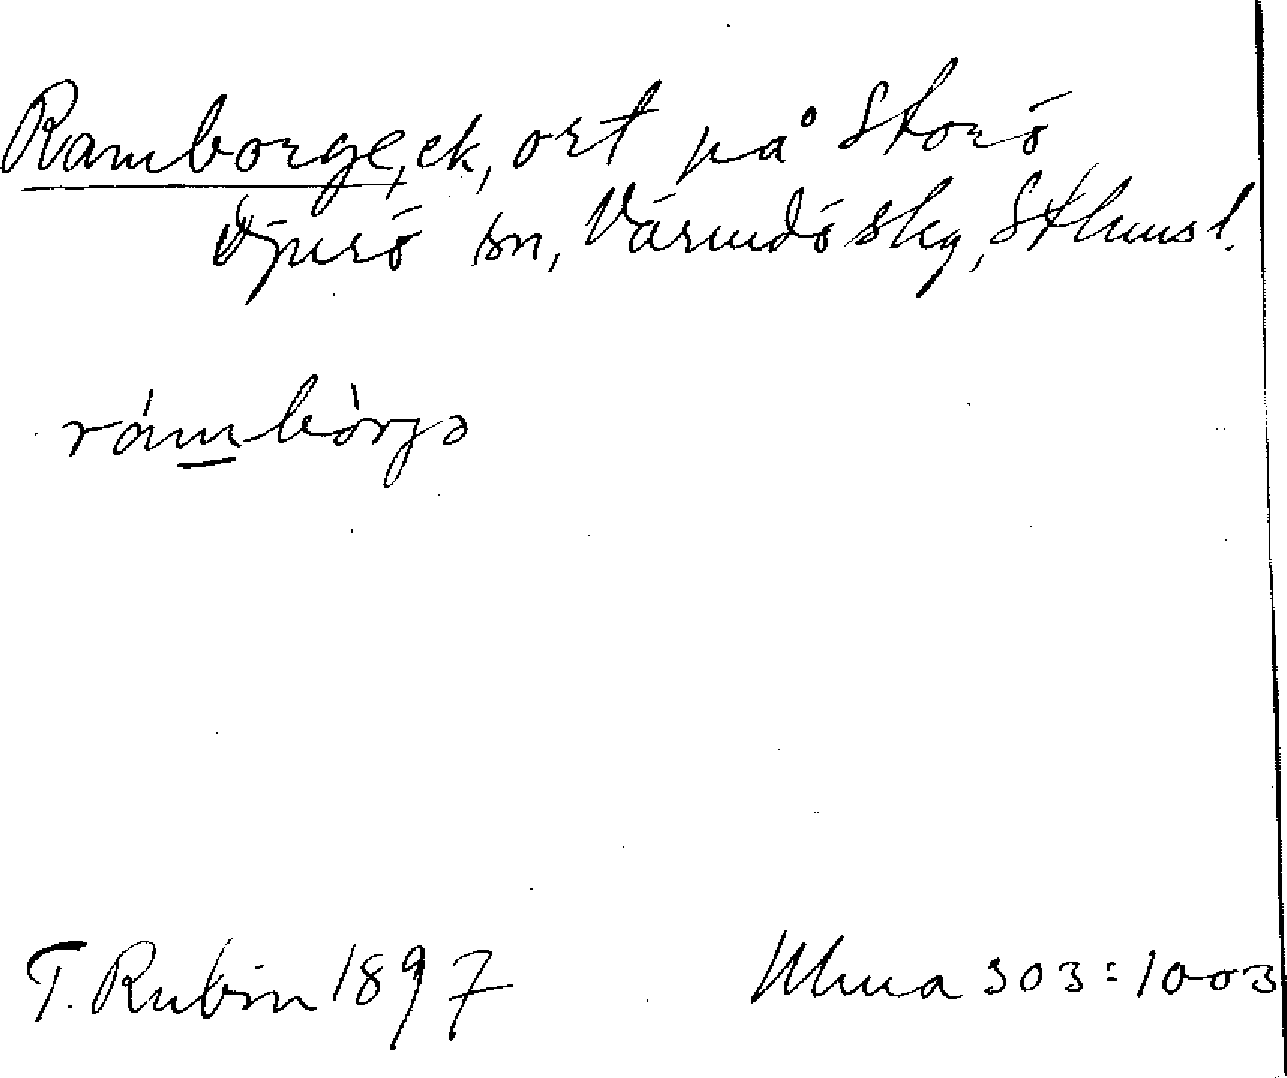 Ramborge, ek, ort på Storö
Djurö sn, Värmdö skg, Sthms l.
rámbòrjə
T. Rubin 1897
Uhma 303:1003